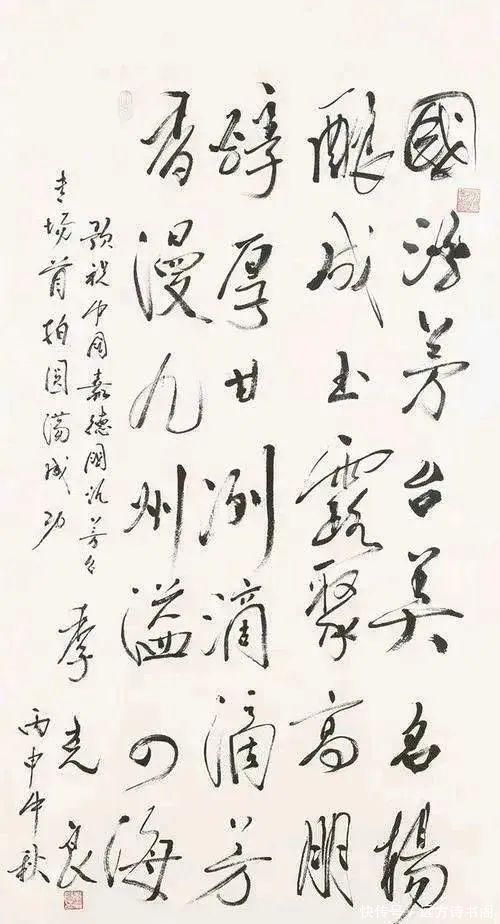 國酒茅台美名揚
釀成玉露聚高朋
醇厚甘洌滴滴芳
香漫九州溢四海
预祝中国嘉德国酒茅台
专場首拍圆满成功
季克良
丙申中秋
快传号/远方诗书阁